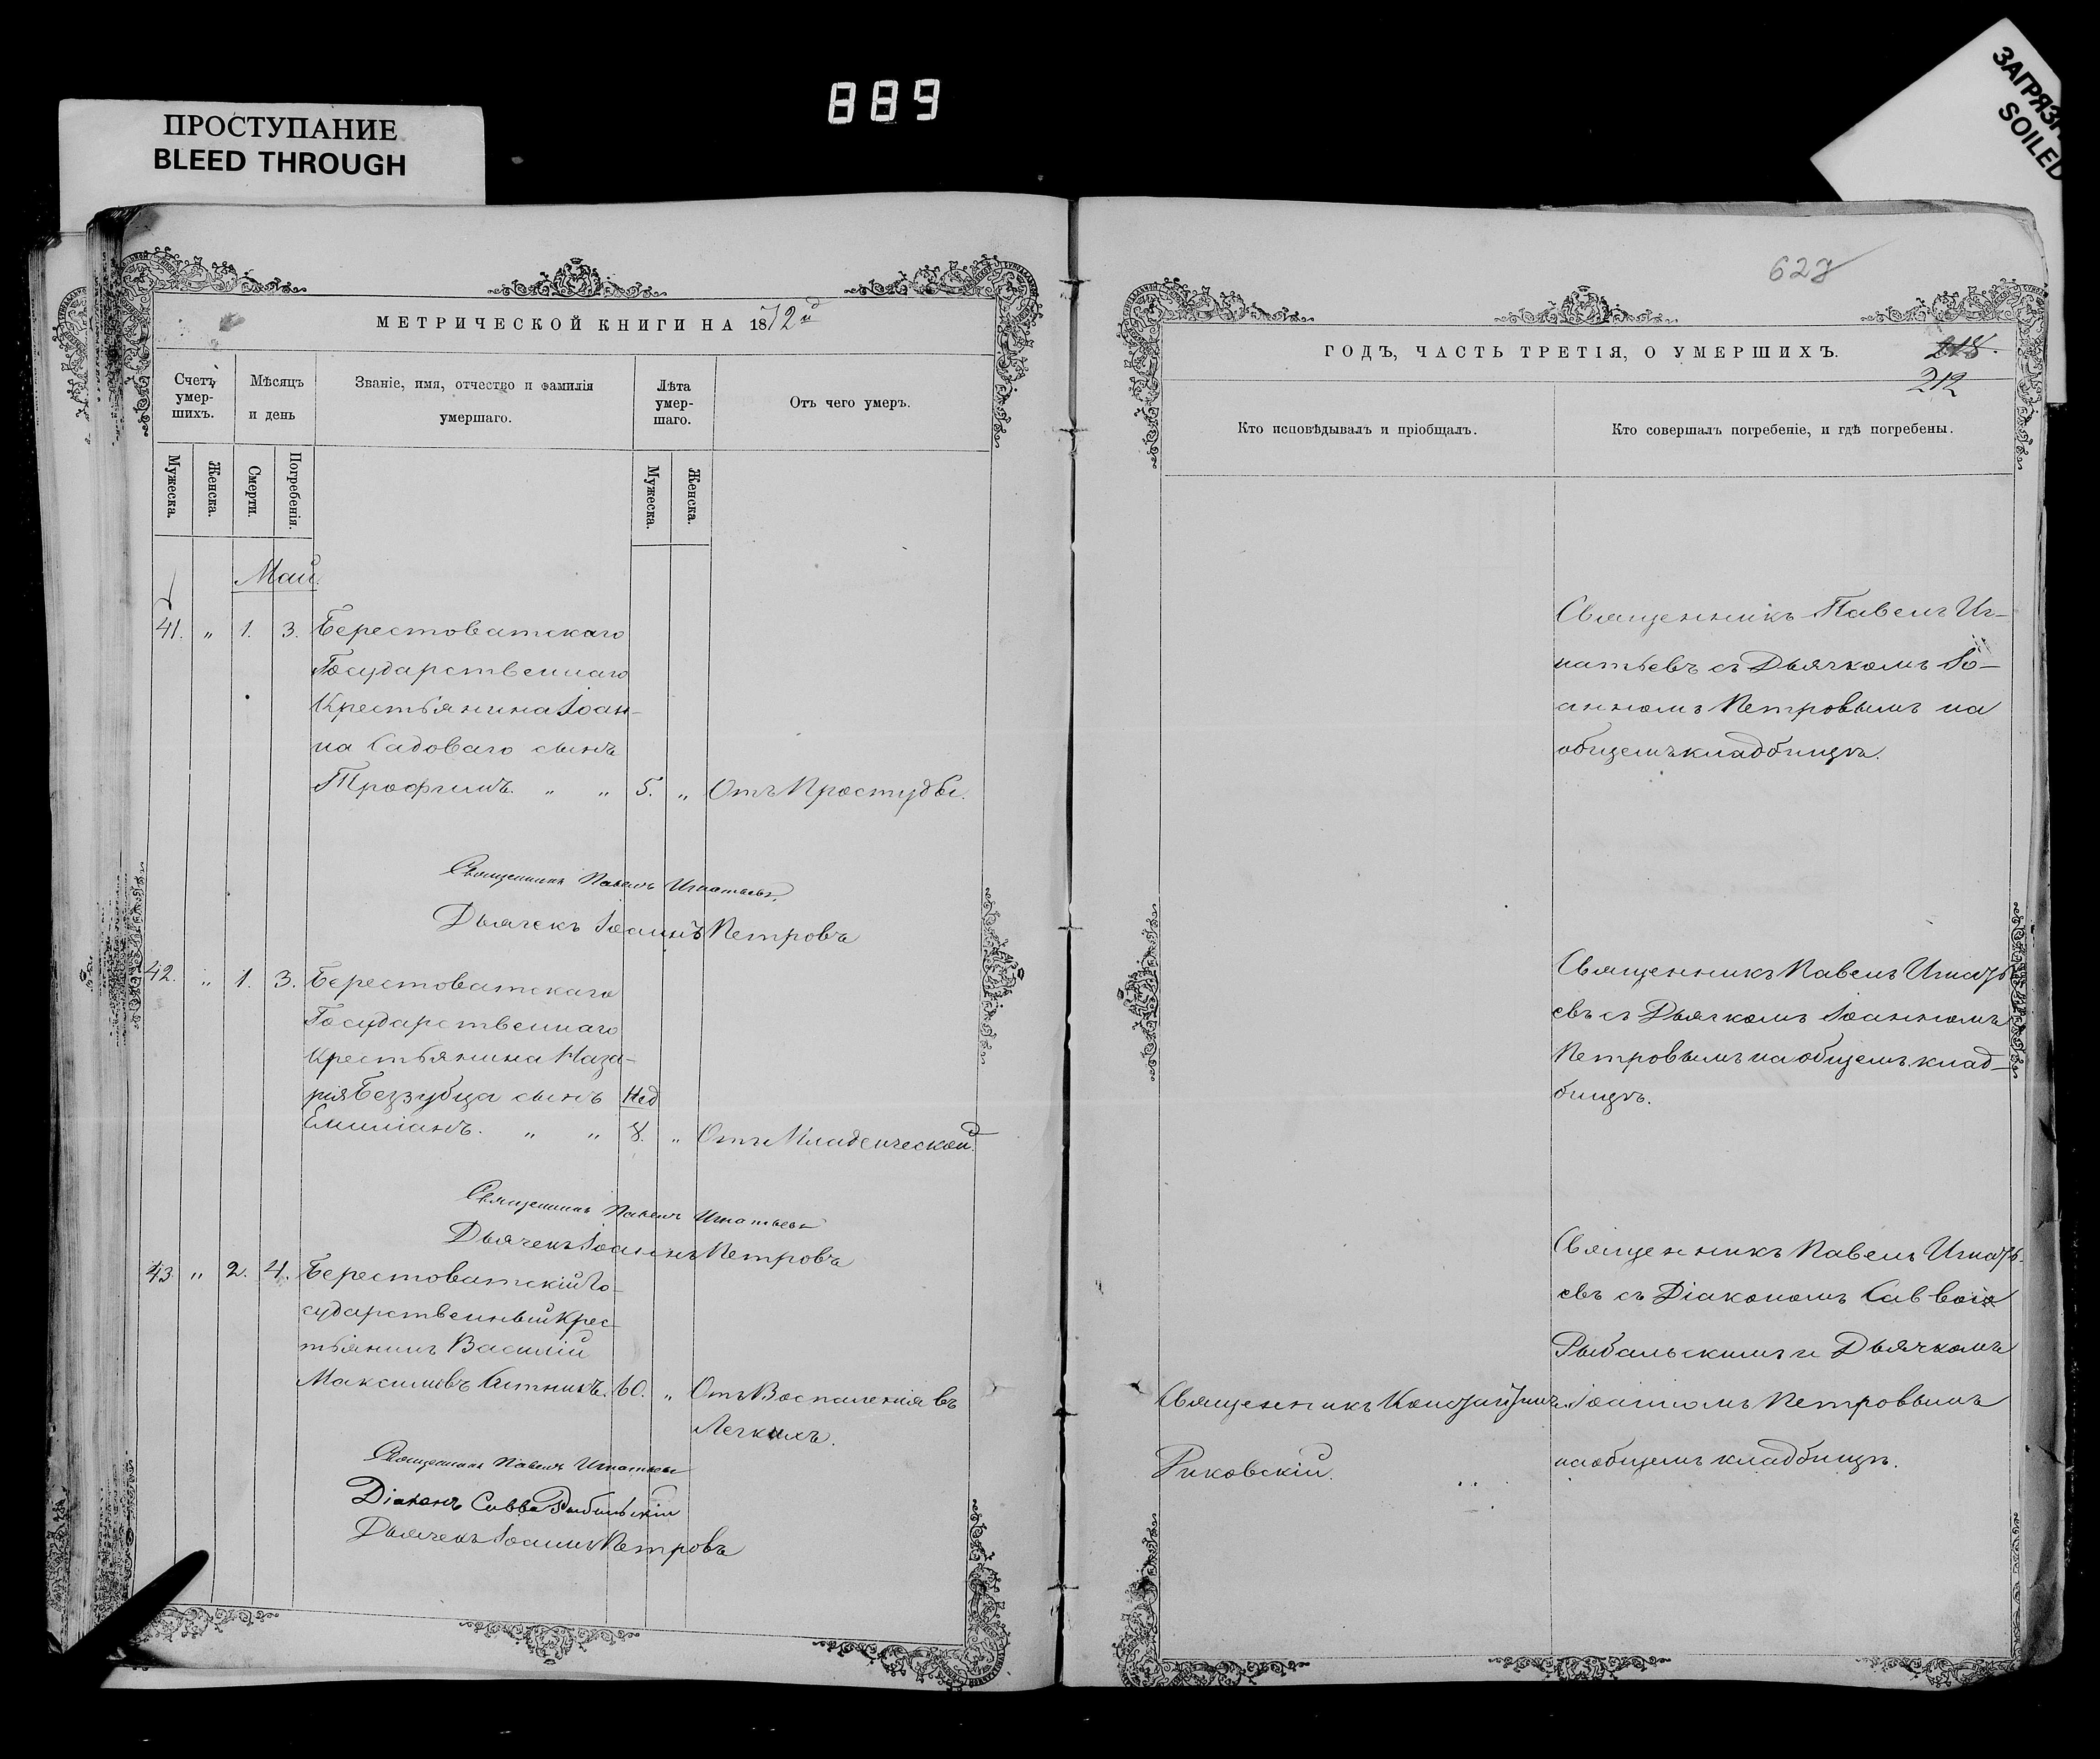 889
ПРОСТУПАНИЕ
BLEED THROUGH
SOILED
МЕТРИЧЕСКОЙ КНИГИ НА 1872й
Счетъ умер-шихъ.
Мѣсяцъ и день
Званіе, имя, отчество и фамилія умершаго.
Лѣта умер-шаго.
Отъ чего умеръ.
Мужеска.
Женска.
Смерти.
Погребенія.
Мужеска.
Женска.
Май.
41. " 1. 3. Берестоватскаго
Государственнаго
Крестьянина Іоан-
на Садоваго сынъ
Трофимъ. " " 5. " Отъ Простуды.
Священникъ Павелъ Игнатьевъ.
Дьячекъ Іоаннъ Петровъ
42. " 1. 3. Берестоватскаго
Государственнаго
Крестьянина Наза-
рія Беззубца сынъ Нед
Емиліанъ. " " 8. " Отъ Младенческой.
Священникъ Павелъ Игнатьевъ
Дьячекъ Іоаннъ Петровъ
43. " 2. 4. Берестоватскій Го-
сударственный Крес-
тьянинъ Василій
Максимовъ 60. " Отъ Воспаленія въ
Легкихъ.
Священникъ Павелъ Игнатьевъ
Діаконъ Савва Рыбальскій
Дьячекъ Іоаннъ Петровъ
627
ГОДЪ, ЧАСТЬ ТРЕТІЯ, О УМЕРШИХЪ.
218.
212
Кто исповѣдывалъ и пріобщалъ.
Кто совершалъ погребеніе, и гдѣ погребены.
Священникъ Павелъ Иг-
натьевъ съ Дьячкомъ Іо-
анномъ Петровымъ на
общемъ кладбищѣ.
Священникъ Павелъ Игнать-
евъ съ Дьячкомъ Іоанномъ
Петровымъ на общемъ клад-
бищѣ.
Священникъ Павелъ Игнать-
евъ съ Діакономъ Саввою
Рыбальскимъ и Дьячкомъ
Священникъ Константинъ Іоанномъ Петровымъ
Риковскій. на общемъ кладбищѣ.